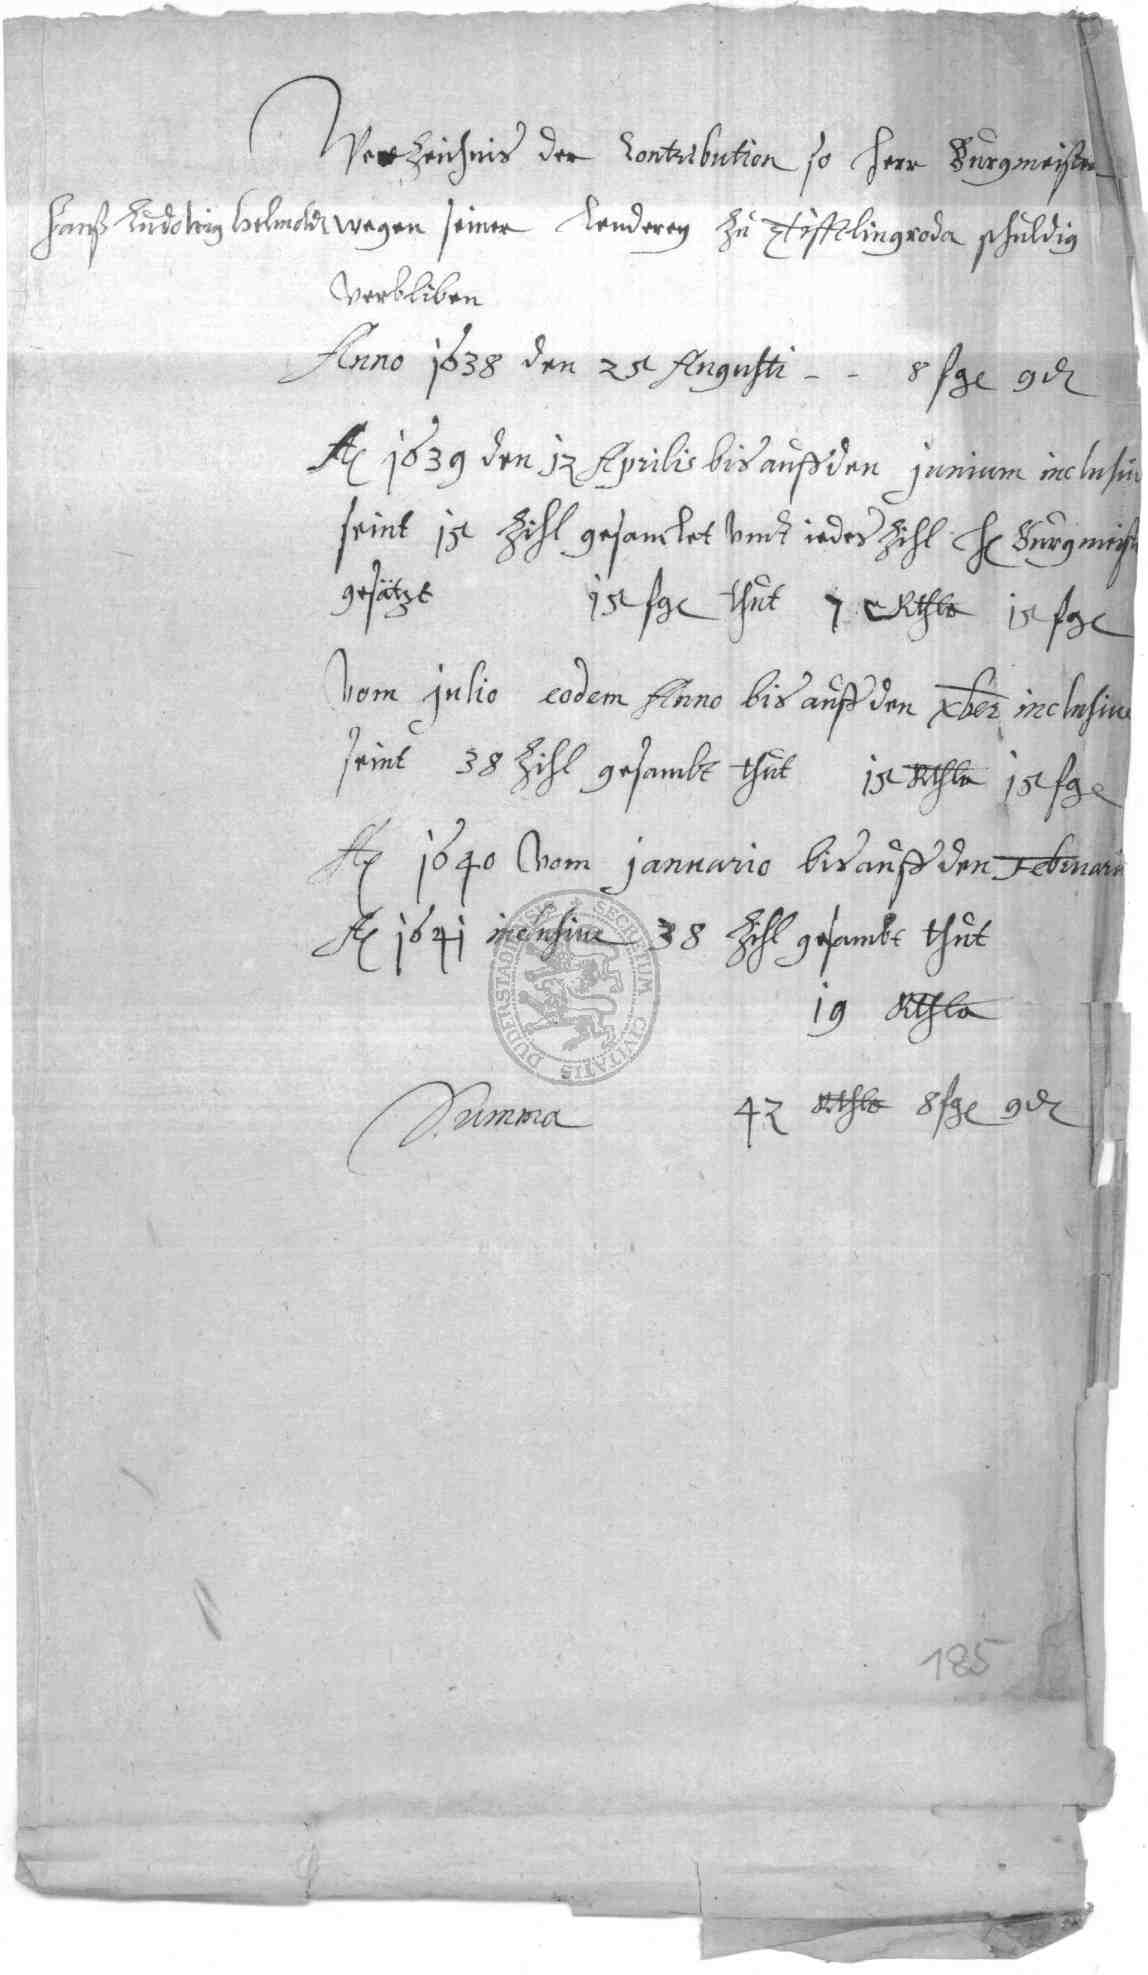 Verzeichnis der Contribution so Herr Burgmeister
Hanß Ludowig Helmoldt wegen seiner Lenderey zu Tifftlingroda schuldig
verbliben
Anno 1638 den 25 Augusti - - 8 sge 9 d
Ao 1639 den 12 Aprilis bis auff den junium inclusiu
seint 15 Zihl gesamlet vnd iedes Zihl H Burgmeist
gesätzt 15 sge thut 7 Rthlr 15 sge
Vom julio eodem Anno bis auff den xber inclusiue
seint 38 Zihl gesambt thut 15 Rthlr 15 sge
Ao 1640 Vom januario bis auff den Februari
Ao 1641 inclusiue 38 Zihl gesambt thut
19 Rthlr
Summa 42 Rthlr 8 sge 9 d
SECRETUM CIVITATIS DUDERSTADENSIS
185